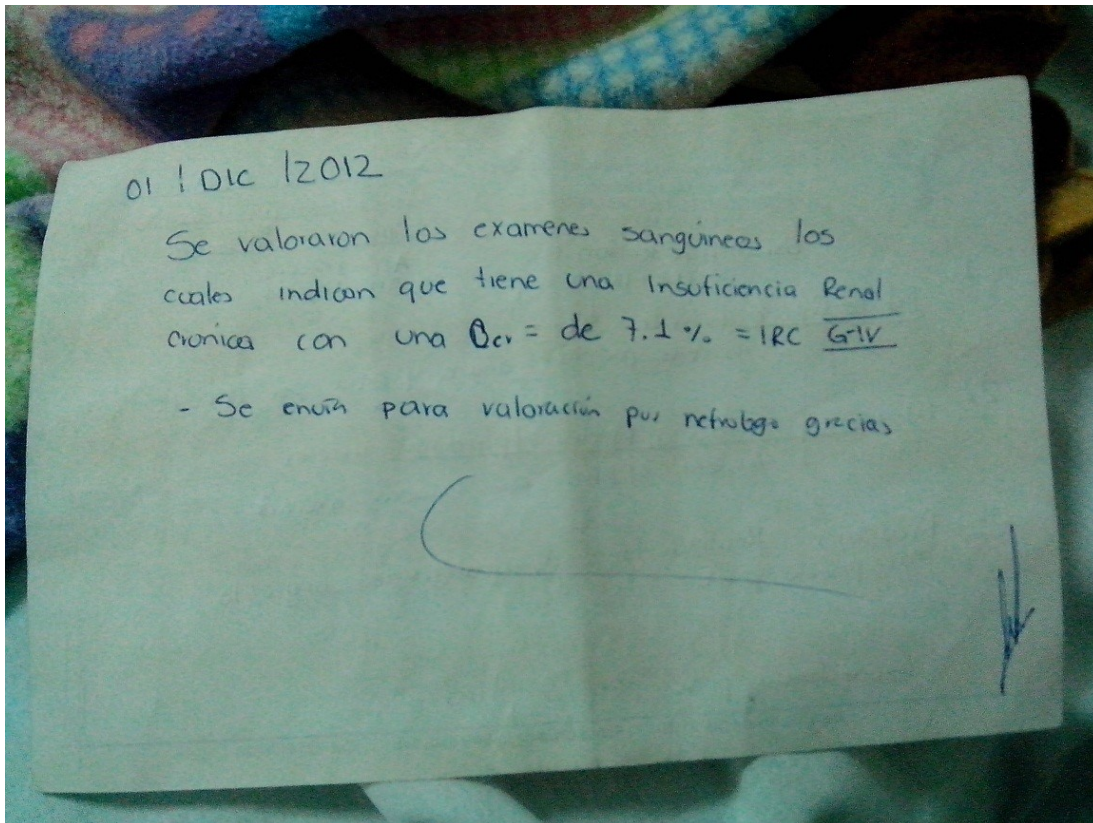 01 / DIC / 2012
Se valoraron los examenes sanguineos los
cuales indican que tiene una Insuficiencia Renal
cronica con una Dcr = de 7.1 % = IRC G-IV
- Se envia para valoración por nefrologo gracias